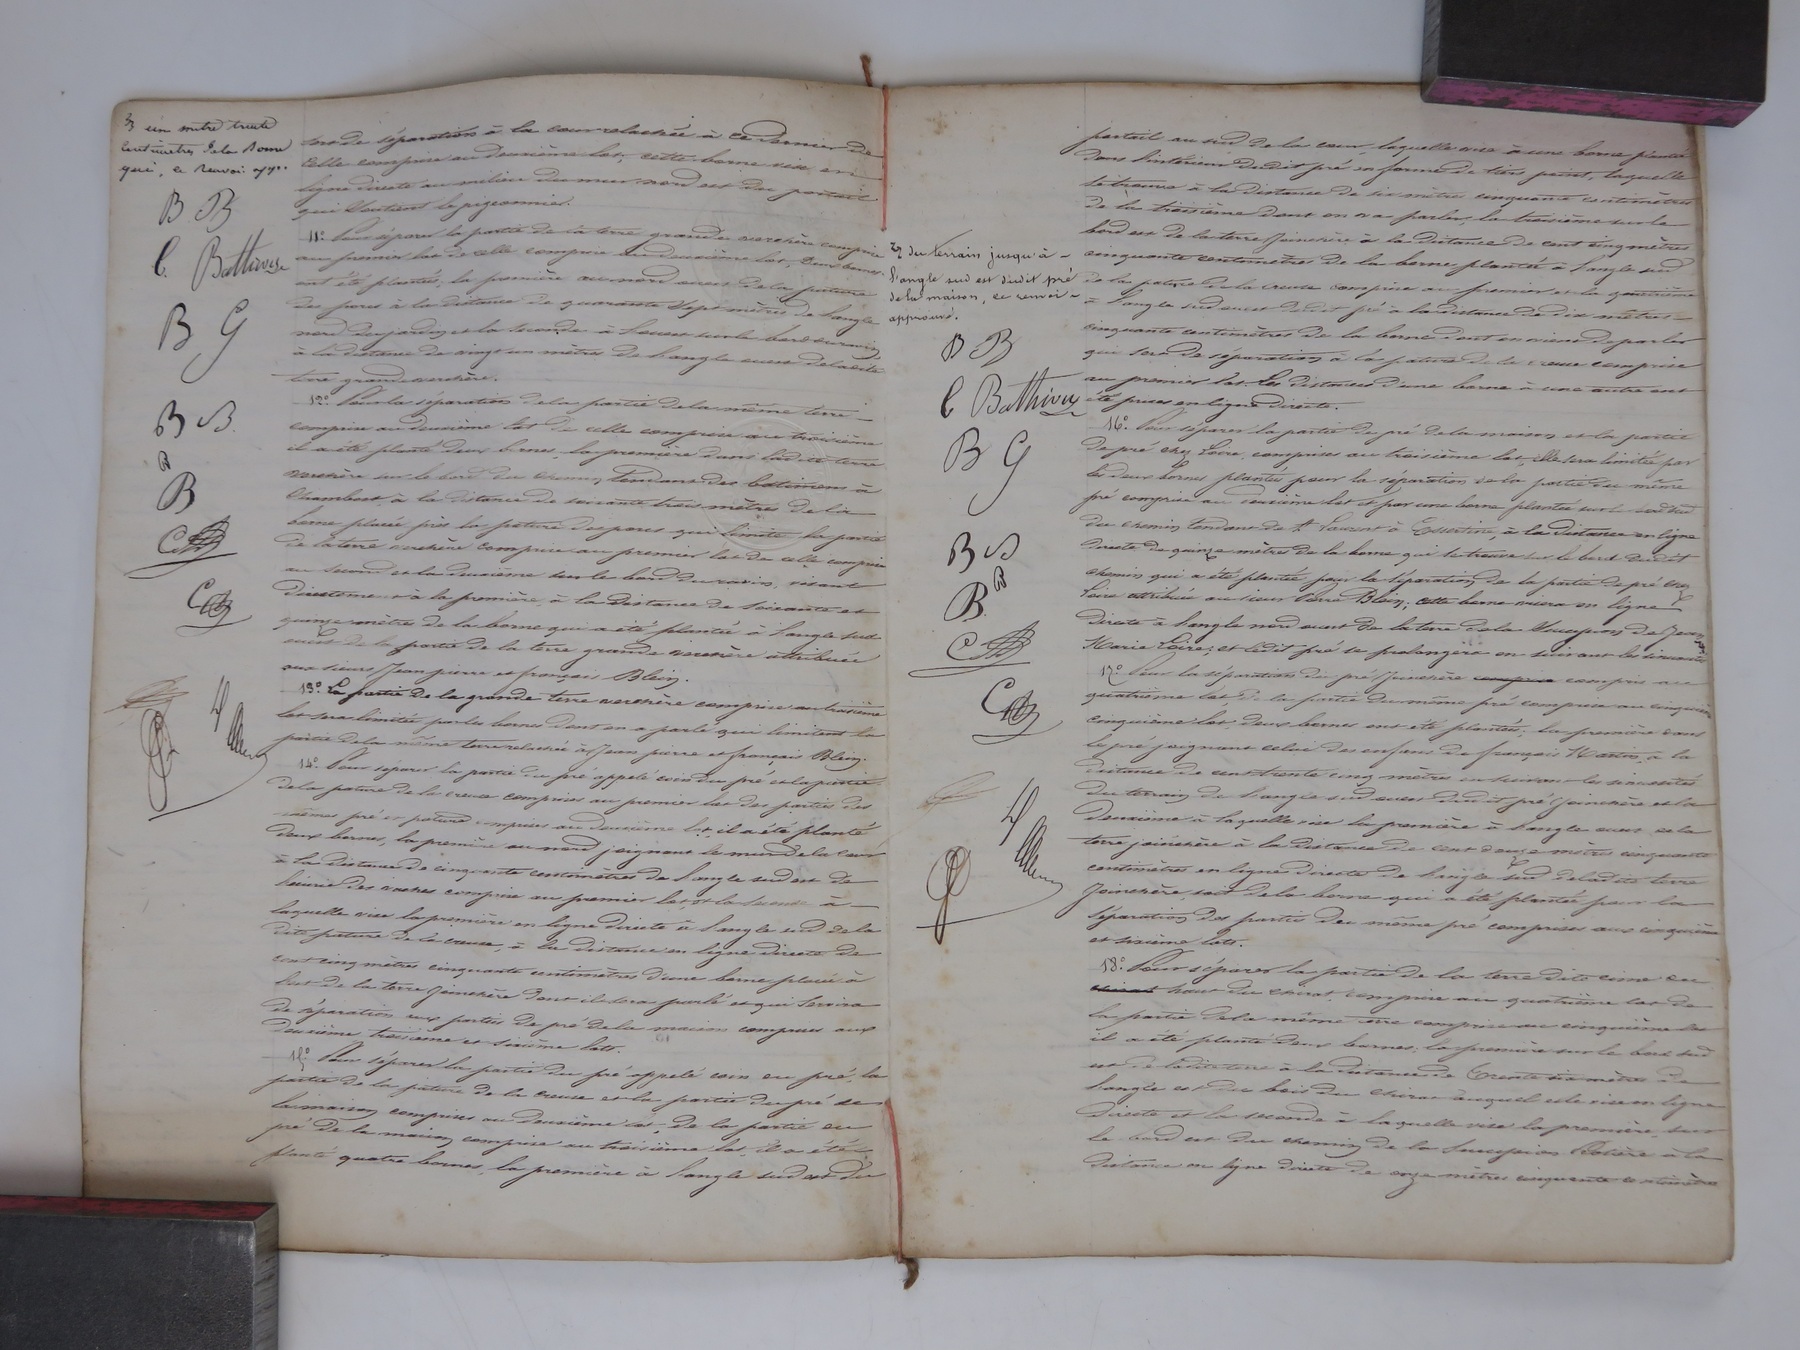 un mètre trente
centimètres de la borne
qui, ce renvoi app..
B B
C. Bathivuy
B G
B B.
B
B
sert de séparation à la cour relachée à ce dernier de
celle comprise au deuxième lot, cette borne vise en
ligne directe au milieu du mur nord est du portail
qui soutient le pigeonnier.
11° Pour séparer la partie de la terre grande verchère comprise
au premier lot de celle comprise au deuxième lot, deux bornes
ont été plantées, la première au nord ouest de la pature
des parcs à la distance de quarante sept mètres de l'angle
nord du jardin, et la seconde à l'ouest sur le bord du ravin
à la distance de vingt un mètres de l'angle ouest de ladite
terre grande verchère.
12° Pour la séparation de la partie de la même terre
comprise au deuxième lot de celle comprise au troisième
il a été planté deux bornes, la première dans ladite terre
verchère sur le bord du chemin tendant des batimens à
Chambost, à la distance de soixante trois mètres de la
borne placée près la pature des parcs qui limite la partie
de la terre verchère comprise au premier lot de celle comprise
au second et la deuxième sur le bord du ravin, visant
directement à la première, à la distance de soixante et
quinze mètres de la borne qui a été plantée à l'angle sud
ouest de la partie de la terre grande verchère attribuée
aux sieurs Jean pierre et françois Blein.
13° La partie de la grande terre verchère comprise au troisième
lot sera limitée par les bornes dont on a parlé qui limitent la
partie de la même terre relachée à Jean pierre et français Blein.
14° Pour séparer la partie du pré appelé coin du pré et la partie
de la pature de la creuse comprises au premier lot des parties des
mêmes pré et pature comprises au deuxième lot, il a été planté
deux bornes, la première au nord joignant le mur de la cour
à la distance de cinquante centimètres de l'angle sud est de
l'écurie des vaches comprise au premier lot et la seconde à
laquelle vise la première en ligne directe à l'angle sud de la
dite pature de la creuse, à la distance en ligne directe de
cent cinq mètres cinquante centimètres d'une borne placée à
l'est de la terre Joinchère dont il sera parlé et qui servira
de séparation aux parties de pré de la maison comprises aux
deuxième, troisième et sixième lots.
15° Pour séparer la partie du pré appelé coin du pré, la
partie de la pature de la creuse et la partie du pré de
la maison comprises au deuxième lot, de la partie du
pré de la maison comprise au troisième lot, il a été
planté quatre bornes, la première à l'angle sud est du
du terrain jusqu'à
l'angle sud est dudit pré
de la maison, ce renvoi
approuvé.
B B
C Bathivuy
B G
B B
B. B
portail au sud de la cour, laquelle vise à une borne plantée
dans l'intérieur dudit pré en forme de tiers point, laquelle
se trouve à la distance de six mètres cinquante centimètres
de la troisième dont on va parler, la troisième sur le
bord est de la terre Joinchère à la distance de cent cinq mètres
cinquante centimètres de la borne plantée à l'angle sud
de la pature de la creuse comprise au premier et la quatrième
à l'angle sud ouest dudit pré à la distance de dix mètres
cinquante centimètres de la borne dont on vient de parler
qui sert de séparation à la pature de la creuse comprise
au premier lot. Les distances d'une borne à une autre ont
été prises en ligne directe.
16° Pour séparer la partie de pré de la maison et la partie
de pré chez Loire, comprises au troisième lot, elle sera limitée par
les deux bornes plantées pour la séparation de la partie du même
pré comprise au deuxième lot et par une borne plantée sur le bord sud
du chemin tendant de St Laurent à Essertine, à la distance en ligne
directe de quinze mètres de la borne qui se trouve sur le bord dudit
chemin qui a été plantée pour la séparation de la partie de pré chez
Loire attribuée au sieur Pierre Blein; cette borne visera en ligne
directe à l'angle nord ouest de la terre de la succession de Jean
Marie Loire; et ledit pré se prolongera en suivant les sinuosités
17° Pour la séparation du pré Joinchère comprise compris au
quatrième lot, de la partie du même pré comprise au cinquième
cinquième lot, deux bornes ont été plantées, la première dans
le pré joignant celui des enfans de françois Martin, à la
distance de cent trente cinq mètres en suivant les sinuosités
du terrain de l'angle sud ouest dudit pré Joinchère et la
deuxième à laquelle vise la première à l'angle ouest de la
terre joinchère à la distance de cent douze mètres cinquante
centimètres en lignes directe de l'angle sud de ladite terre
Joinchère, soit de la borne qui a été plantée pour la
séparation des parties du même pré comprises aux cinquième
et sixième lots.
18° Pour séparer la partie de la terre dite cime du
haut du chirat, comprise au quatrième lot de
la partie de la même terre comprise au cinquième lot
il a été planté deux bornes, la première sur le bord sud
est de ladite terre à la distance de trente six mètres de
l'angle est du bois du chirat auquel elle vise en ligne
directe et la seconde à laquelle vise la première sur
le bord est du chemin de la succession Rotière à la
distance en ligne directe de onze mètres cinquante centimètres